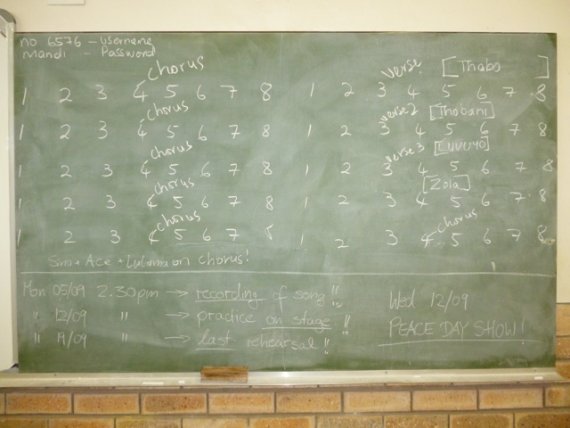 no 6576 - Username
Mandi - Password
chorus
1 2 3 4 5 6 7 8
chorus
1 2 3 4 5 6 7 8
chorus
1 2 3 4 5 6 7 8
chorus
1 2 3 4 5 6 7 8
chorus
1 2 3 4 5 6 7 8
Sim + Ace + on chorus!
verse [Thabo ]
1 2 3 4 5 6 7 8
verse 2 [Thobani]
1 2 3 4 5 6 7 8
verse 3 [Luvuyo]
1 2 3 4 5 6 7 8
[Zola]
1 2 3 4 5 6 7 8
chorus
1 2 3 4 5 6 7 8
Mon 05/09 2.30pm → recording of song!!
" 12/09 " → practice on stage!!
" 19/09 " → last rehearsal!!
Wed 12/09
PEACE DAY SHOW!